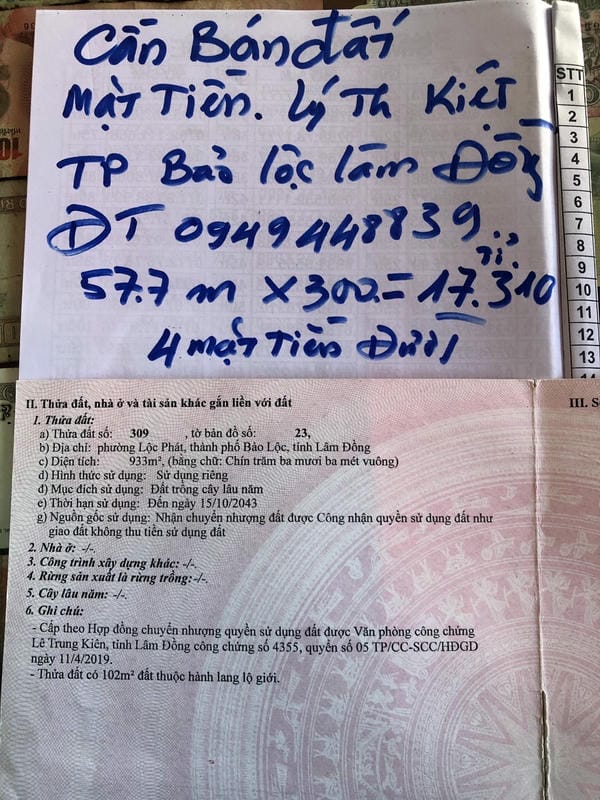 Cần Bán đất
Mặt Tiền. Lý Th Kiệt
TP Bảo lộc lâm Đồng
ĐT 0949448839.
Tỉ.
57.7 m x 300. = 17.310
4 mặt Tiền Đười
STT
1
2
3
4
5
6
7
8
9
10
11
12
13
II. Thửa đất, nhà ở và tài sản khác gắn liền với đất
III. S
1. Thửa đất:
a) Thửa đất số: 309 , tờ bản đồ số: 23,
b) Địa chỉ: phường Lộc Phát, thành phố Bảo Lộc, tỉnh Lâm Đồng
c) Diện tích: 933m², (bằng chữ: Chín trăm ba mươi ba mét vuông)
d) Hình thức sử dụng: Sử dụng riêng
đ) Mục đích sử dụng: Đất trồng cây lâu năm
e) Thời hạn sử dụng: Đến ngày 15/10/2043
g) Nguồn gốc sử dụng: Nhận chuyển nhượng đất được Công nhận quyền sử dụng đất như
giao đất không thu tiền sử dụng đất
2. Nhà ở: -/-.
3. Công trình xây dựng khác: -/-.
4. Rừng sản xuất là rừng trồng:-/-.
5. Cây lâu năm: -/-.
6. Ghi chú:
- Cấp theo Hợp đồng chuyển nhượng quyền sử dụng đất được Văn phòng công chứng
Lê Trung Kiên, tỉnh Lâm Đồng công chứng số 4355, quyển số 05 TP/CC-SCC/HĐGD
ngày 11/4/2019.
- Thửa đất có 102m² đất thuộc hành lang lộ giới.